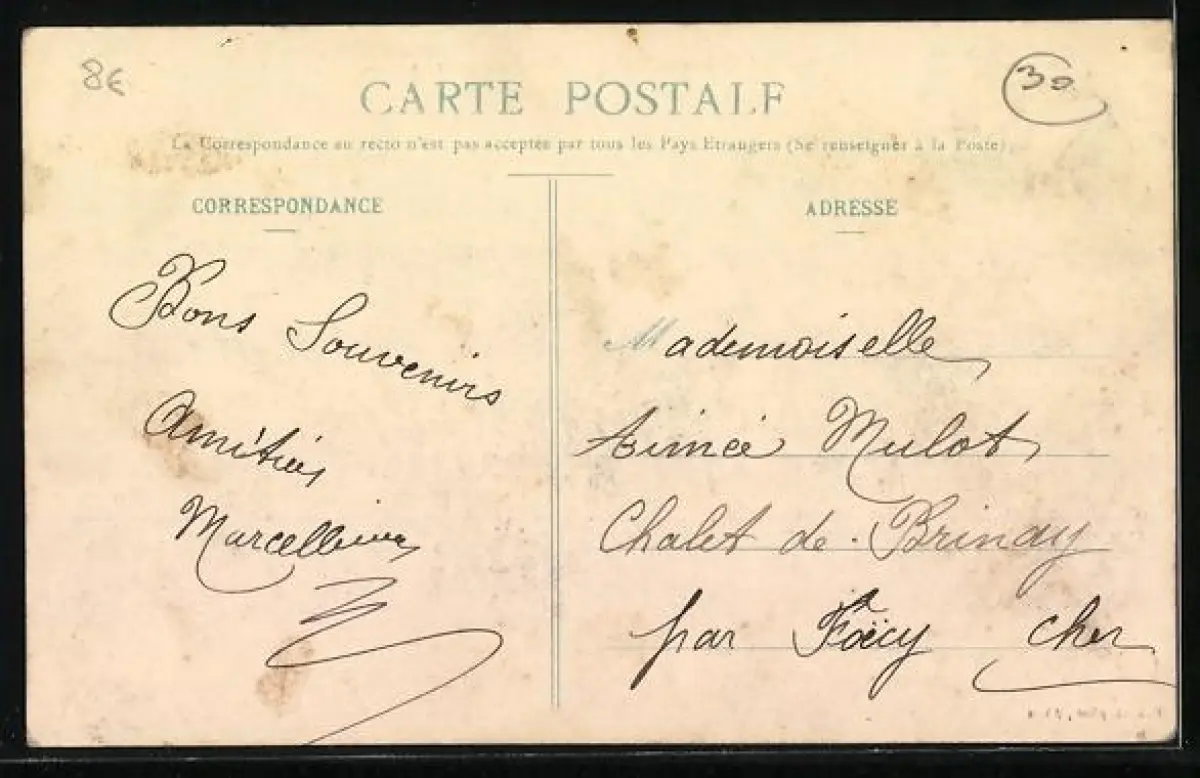 8€
30
CARTE POSTALE
La Correspondance au recto n'est pas acceptée par tous les Pays Etrangers (Se renseigner à la Poste)
CORRESPONDANCE
Bons Souvenirs
Amitiés
Marcelline
ADRESSE
Mademoiselle
Aimée Mulot
Chalet de Brinay
par Foëcy Cher